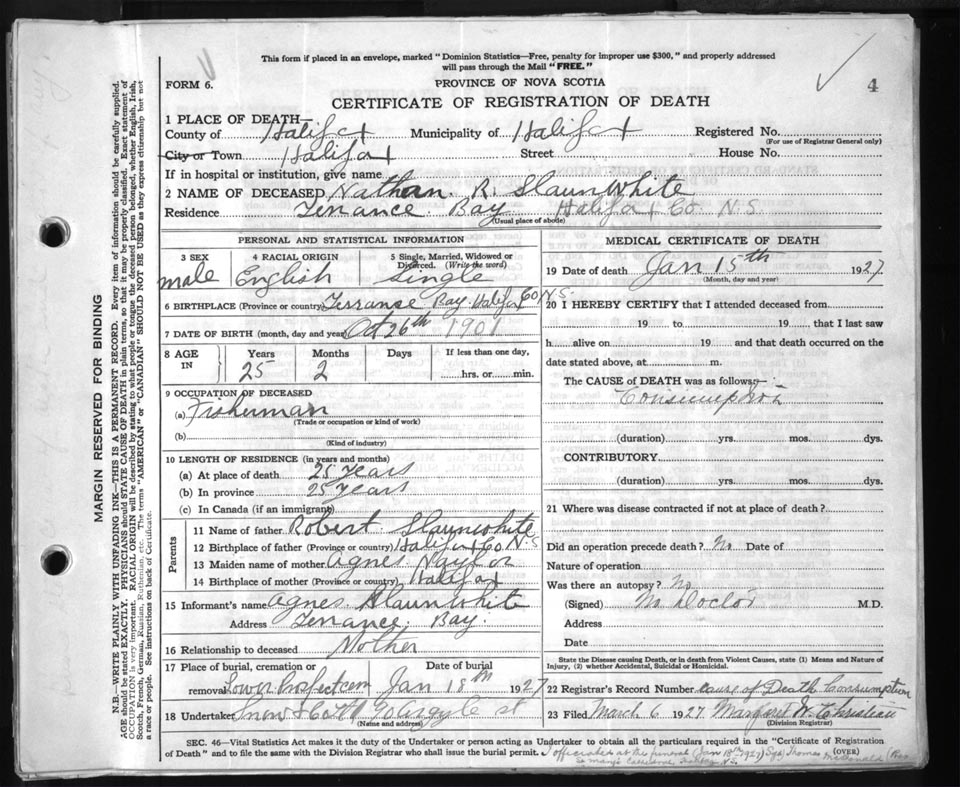 This form if placed in an envelope, marked "Dominion Statistics—Free, penalty for improper use $300," and properly addressed
will pass through the Mail "FREE."
FORM 6.
PROVINCE OF NOVA SCOTIA
4
CERTIFICATE OF REGISTRATION OF DEATH
1 PLACE OF DEATH—
County of Halifax Municipality of Halifax Registered No.
(For use of Registrar General only)
City or Town Halifax Street House No.
If in hospital or institution, give name
2 NAME OF DECEASED Nathan. R. Slaunwhite
Residence Terrance. Bay Halifax Co N.S.
(Usual place of abode)
PERSONAL AND STATISTICAL INFORMATION
3 SEX 4 RACIAL ORIGIN 5 Single, Married, Widowed or
Divorced. (Write the word)
male English Single
6 BIRTHPLACE (Province or country) Terrance Bay Halifax Co N.S.
7 DATE OF BIRTH (month, day and year) Oct 26th 1901
8 AGE IN Years Months Days If less than one day,
25 2 hrs. or min.
9 OCCUPATION OF DECEASED
(a) Fisherman
(Trade or occupation or kind of work)
(b)
(Kind of industry)
10 LENGTH OF RESIDENCE (in years and months)
(a) At place of death 25 years
(b) In province 25 years
(c) In Canada (if an immigrant)
Parents
11 Name of father Robert Slaunwhite
12 Birthplace of father (Province or country) Halifax Co N.S
13 Maiden name of mother Agnes Naylor
14 Birthplace of mother (Province or country) Halifax
15 Informant's name Agnes Slaunwhite
Address Terrance, Bay.
16 Relationship to deceased Mother
17 Place of burial, cremation or Date of burial
removal Lower Prospect cem Jan 18th 1927
18 Undertaker Snow & Co Ltd 90 Argyle st
(Name and address)
MEDICAL CERTIFICATE OF DEATH
19 Date of death Jan 15th 1927
(Month, day and year)
20 I HEREBY CERTIFY that I attended deceased from
19 to 19 that I last saw
h alive on 19 and that death occurred on the
date stated above, at m.
The CAUSE OF DEATH was as follows:—
Consumption
(duration) yrs. mos. dys.
CONTRIBUTORY
(duration) yrs. mos. dys.
21 Where was disease contracted if not at place of death?
Did an operation precede death? No Date of
Nature of operation
Was there an autopsy? No
(Signed) No Doctor M.D.
Address
Date
State the Disease causing Death, or in death from Violent Causes, state (1) Means and Nature of
Injury, (2) whether Accidental, Suicidal or Homicidal.
22 Registrar's Record Number Cause of Death Consumption
23 Filed March 6 1927 Margaret W. Christian
(Division Registrar)
SEC. 46—Vital Statistics Act makes it the duty of the Undertaker or person acting as Undertaker to obtain all the particulars required in the "Certificate of Registration
of Death" and to file the same with the Division Registrar who shall issue the burial permit. (OVER)
I officiated at the funeral (Jan 18th 1927) Sgd Thomas McDonald
St Mary's Cathedral, Halifax N.S.
MARGIN RESERVED FOR BINDING
N.B.—WRITE PLAINLY WITH UNFADING INK—THIS IS A PERMANENT RECORD. Every item of information should be carefully supplied.
AGE should be stated EXACTLY. PHYSICIANS should STATE CAUSE OF DEATH in plain terms, so that it may be properly classified. Exact statement of
OCCUPATION is very important. RACIAL ORIGIN will be described by stating to what people or tongue the deceased person belonged, whether English, Irish,
Scotch, French, German, Russian, Ruthenian, etc. The terms "AMERICAN" or "CANADIAN" SHOULD NOT BE USED as they express citizenship but not
a race or people. See instructions on back of Certificate.